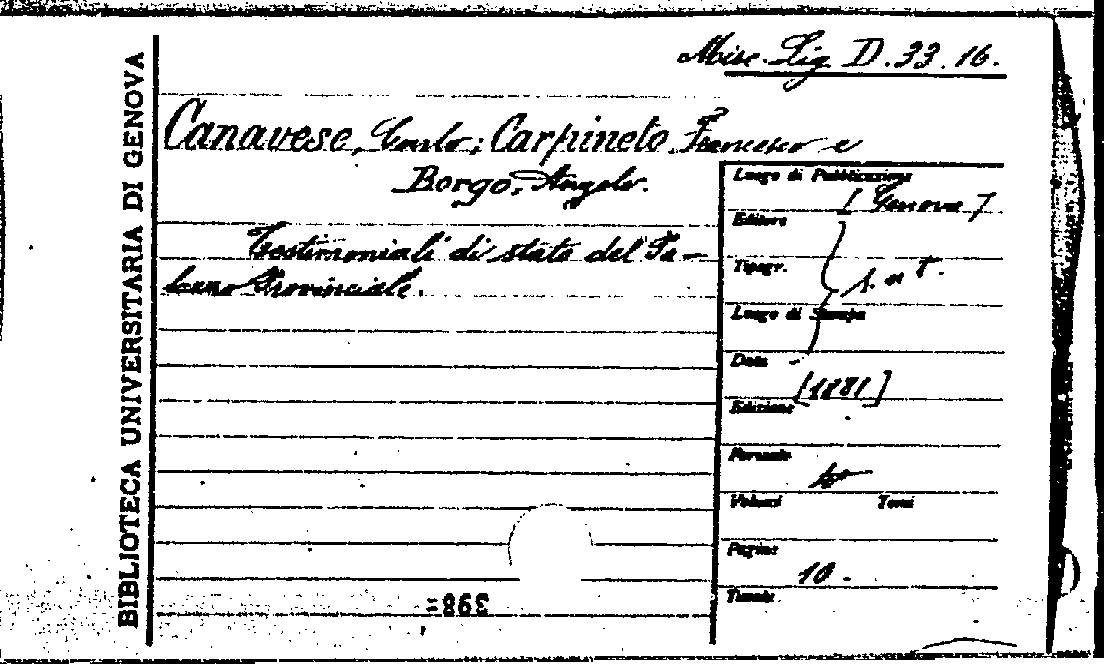 Misc. Lig. D. 33. 16.
BIBLIOTECA UNIVERSITARIA DI GENOVA
Canavese, Carlo; Carpineto, Francesco e
Borgo, Angelo.
Testimoniali di stato del Pa-
lazzo Provinciale.
Luogo di Pubblicazione
[Genova]
Editore
Tipogr.
s. n. t.
Luogo di Stampa
Data
[1881]
Edizione
Formato
4°
Volumi Tomi
Pagine
10.
Tavole